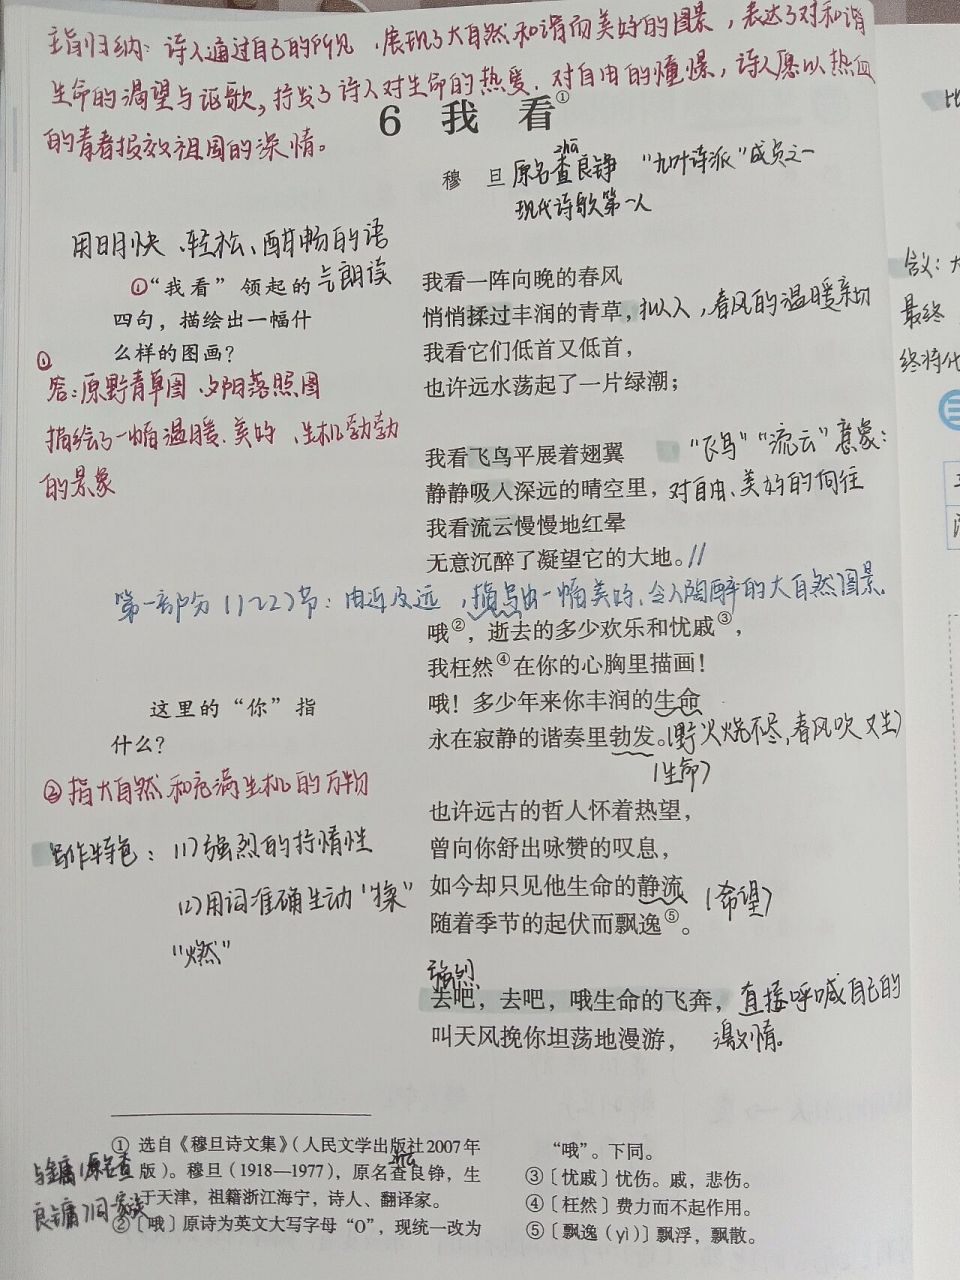 主旨归纳：诗人通过自己的所见，展现了大自然和谐而美好的图景，表达了对和谐
生命的渴望与讴歌，抒发了诗人对生命的热爱，对自由的憧憬，诗人愿以热血
的青春报效祖国的深情。
6 我 看①
穆 旦 原名查良铮 “九叶诗派”成员之一
zhā
现代诗歌第一人
用明快、轻松、酣畅的语
气朗读
①“我看”领起的
四句，描绘出一幅什
么样的图画？
①
答：原野青草图 夕阳落照图
描绘了一幅温暖、美好、生机勃勃
的景象
我看一阵向晚的春风
悄悄揉过丰润的青草，拟人，春风的温暖亲切
我看它们低首又低首，
也许远水荡起了一片绿潮；
我看飞鸟平展着翅翼 “飞鸟”“流云”意象：
静静吸入深远的晴空里，对自由、美好的向往
我看流云慢慢地红晕
无意沉醉了凝望它的大地。//
第一部分（1）（2）节：由近及远，描写出一幅美好、令人陶醉的大自然图景.
哦②，逝去的多少欢乐和忧戚③，
我枉然④在你的心胸里描画！
哦！多少年来你丰润的生命
永在寂静的谐奏里勃发。（野火烧不尽，春风吹又生）
（生命）
这里的“你”指
什么？
②指大自然和充满生机的万物
写作特色：（1）强烈的抒情性
（2）用词准确生动“揉”
“燃”
也许远古的哲人怀着热望，
曾向你舒出咏赞的叹息，
如今却只见他生命的静流（希望）
随着季节的起伏而飘逸⑤。
强烈
去吧，去吧，哦生命的飞奔，直接呼喊自己的
叫天风挽你坦荡地漫游， 激情。
① 选自《穆旦诗文集》（人民文学出版社2007年
版）。穆旦（1918—1977），原名查良铮，生
zhā
于天津，祖籍浙江海宁，诗人、翻译家。
②〔哦〕原诗为英文大写字母“O”，现统一改为
“哦”。下同。
③〔忧戚〕忧伤。戚，悲伤。
④〔枉然〕费力而不起作用。
⑤〔飘逸（yì）〕飘浮，飘散。
与金庸（原名查
良镛）同家族
比
含义：
最终
终将化
三